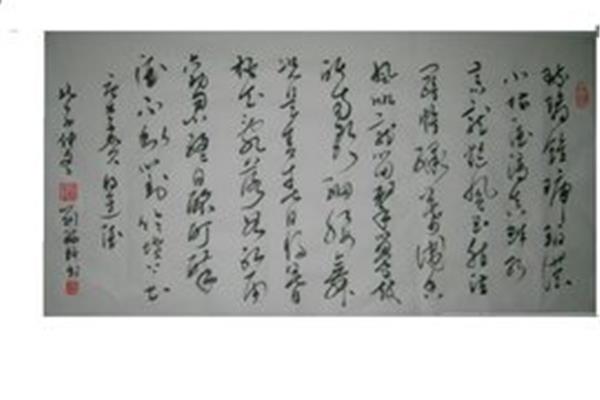 琉璃钟琥珀浓
小槽酒滴真珠红
烹龙炮凤玉脂泣
罗帏绣幕围香
风吹龙笛击鼍鼓
皓齿歌细腰舞
况是青春日将暮
桃花乱落如红雨
劝君终日酩酊醉
酒不到刘伶坟上土
唐李贺将进酒